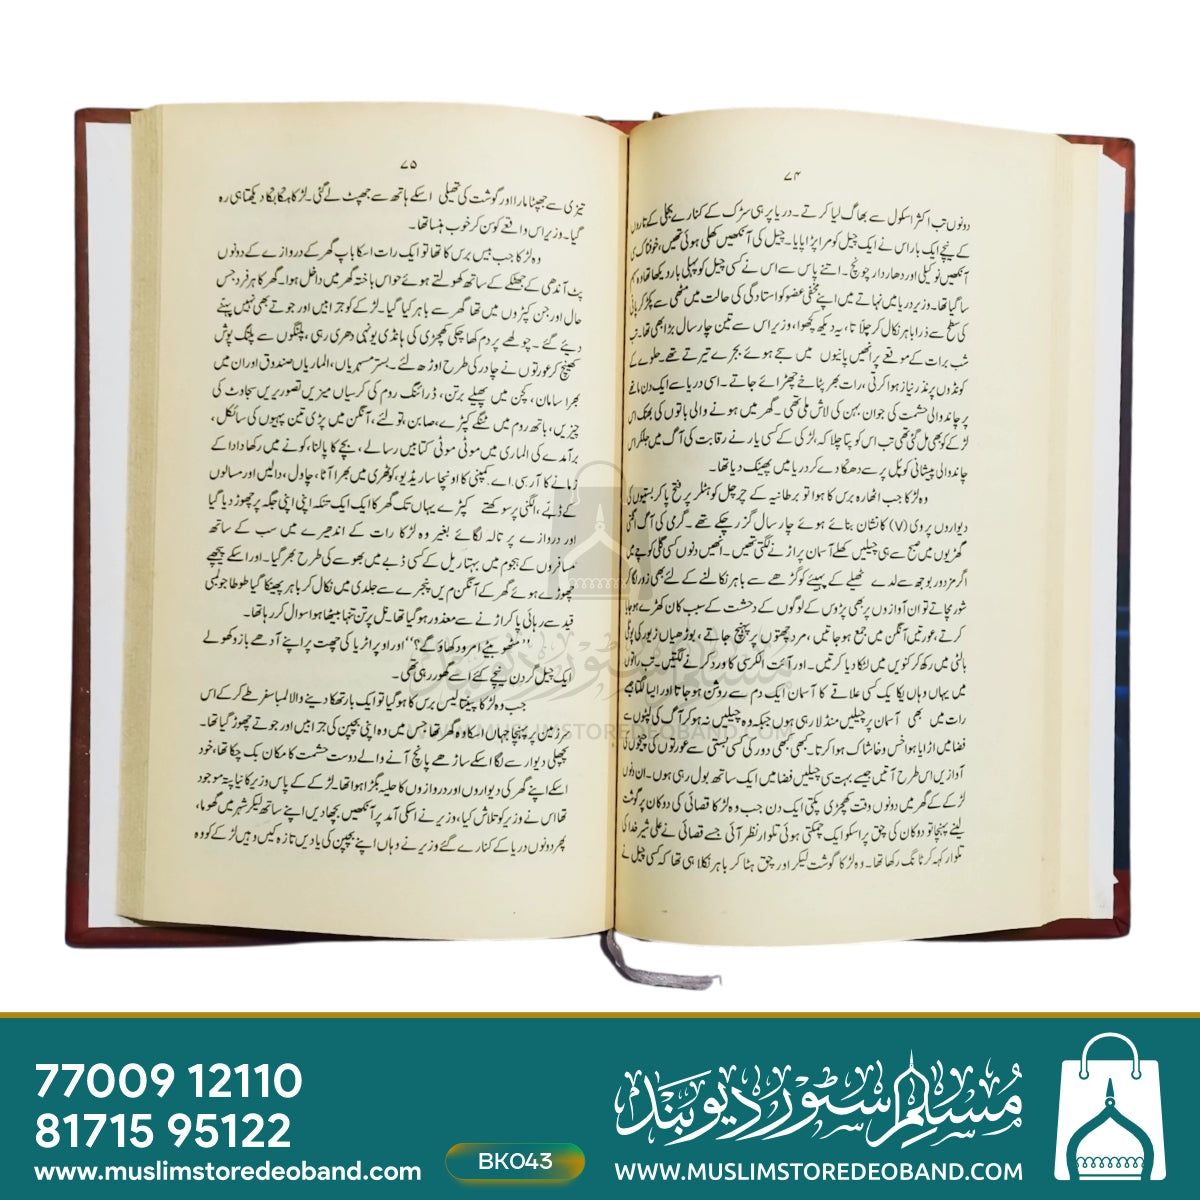 ۷۴
دونوں تب اکثر اسکول سے بھاگ لیا کرتے۔ دریا پر ہی سڑک کے کنارے بجلی کے تاروں
کے نیچے ایک بار اس نے ایک چیل کو مرا پڑا پایا۔ چیل کی آنکھیں کھلی ہوئی تھیں، خوفناک سی
آنکھیں نوکیلی اور دھار دار چونچ۔ اتنے پاس سے اس نے کسی چیل کو پہلی بار دیکھا تھا وہ سہم
سا گیا تھا۔ وزیر دریا میں نہاتے میں اپنے مخفی عضو کو استادگی کی حالت میں مٹھی سے پکڑ کر پانی
کی سطح سے ذرا باہر نکال کر چلاتا، یہ دیکھ کچھوا، وزیر اس سے تین چار سال بڑا بھی تھا۔ تب
شب برات کے موقعے پر انھیں پانیوں میں سجے ہوئے بجرے تیرتے تھے۔ حلوے کے
کونڈوں پر نذر نیاز ہوا کرتی، رات بھر پٹاخے چھڑائے جاتے۔ اسی دریا سے ایک دن ماتھے
پر چاند والی حشمت کی جوان بہن کی لاش ملی تھی۔ گھر میں ہونے والی باتوں کی بھنک اس
لڑکے کو بھی مل گئی تھی تب اس کو پتا چلا کہ، لڑکی کے کسی یار نے رقابت کی آگ میں جلکر اس
چاند والی پیشانی کو پل پر سے دھکا دے کر دریا میں پھینک دیا تھا۔
وہ لڑکا جب اٹھارہ برس کا ہوا تو برطانیہ کے چرچل کو ہٹلر پر فتح پا کر بستیوں کی
دیواروں پر وی (V) کا نشان بنائے ہوئے چار سال گزر چکے تھے۔ گرمی کی آگ اگلتی
گھڑیوں میں صبح سے ہی چیلیں کھلے آسمان پر اڑنے لگتی تھیں۔ انھیں دنوں کسی گلی کوچے میں
اگر مزدور بوجھ سے لدے ٹھیلے کے پہیئے کو گڑھے سے باہر نکالنے کے لئے بھی زور لگا کر
شور مچاتے تو ان آوازوں پر بھی پڑوس کے لوگوں کے دہشت کے سبب کان کھڑے ہو جایا
کرتے، عورتیں آنگن میں جمع ہو جاتیں، مرد چھتوں پر پہنچ جاتے، بوڑھیاں زیور کی پوٹلی
بالٹی میں رکھ کر کنویں میں لٹکا دیا کرتیں۔ اور آئت الکرسی کا ورد کرنے لگتیں۔ تب راتوں
میں یہاں وہاں یکا یک کسی علاقے کا آسمان ایک دم سے روشن ہو جاتا اور ایسا لگتا جیسے
رات میں بھی آسمان پر چیلیں منڈلا رہی ہوں جبکہ وہ چیلیں نہ ہو کر آگ کی لپٹوں سے
فضا میں اڑایا ہوا خس و خاشاک ہوا کرتا۔ کبھی کبھی دور کی کسی بستی سے عورتوں کی چیخوں کی
آوازیں اس طرح آتیں جیسے بہت سی چیلیں فضا میں ایک ساتھ بول رہی ہوں۔ ان دنوں
لڑکے کے گھر میں دونوں وقت کھچڑی پکتی ایک دن جب وہ لڑکا قصائی کی دوکان پر گوشت
لینے پہنچا تو دوکان کی چق پر اسکو ایک چمکتی ہوئی تلوار نظر آئی جسے قصائی نے علی شیر خدا کی
تلوار کہہ کر ٹانگ رکھا تھا۔ وہ لڑکا گوشت لیکر اور چق ہٹا کر باہر نکلا ہی تھا کہ کسی چیل نے
۷۵
تیزی سے جھپٹا مارا اور گوشت کی تھیلی اسکے ہاتھ سے جھپٹ لے گئی۔ لڑکا ہکا بکا دیکھتا ہی رہ
گیا۔ وزیر اس واقعے کو سن کر خوب ہنسا تھا۔
وہ لڑکا جب بیس برس کا تھا تو ایک رات اسکا باپ گھر کے دروازے کے دونوں
پٹ آندھی کے جھٹکے کے ساتھ کھولتے ہوئے حواس باختہ گھر میں داخل ہوا۔ گھر کا ہر فرد جس
حال اور جن کپڑوں میں تھا گھر سے باہر کیا گیا۔ لڑکے کو جرابیں اور جوتے بھی نہیں پہنے
دیئے گئے۔ چولھے پر دم کھا چکی کھچڑی کی ہانڈی یونہی دھری رہی، پلنگوں سے پلنگ پوش
کھینچ کر عورتوں نے چادر کی طرح اوڑھ لئے۔ بستر مسہریاں، الماریاں صندوق اور ان میں
بھرا سامان، کچن میں پھیلے برتن، ڈرائنگ روم کی کرسیاں میزیں تصویریں سجاوٹ کی
چیزیں، باتھ روم میں ٹنگے کپڑے، صابن، تولئے، آنگن میں پڑی تین پہیوں کی سائکل،
برآمدے کی الماری میں موٹی موٹی کتابیں رسالے، بچے کا پالنا، کونے میں رکھا دادا کے
زمانے کا آر۔سی۔اے۔ کمپنی کا اونچا سا ریڈیو، کوٹھری میں بھرا آٹا، چاول، دالیں اور مسالوں
کے ڈبے، الگنی پر سوکھتے کپڑے یہاں تک گھر کا ایک ایک تنکہ اپنی اپنی جگہ پر چھوڑ دیا گیا
اور دروازے پر تالہ لگائے بغیر وہ لڑکا رات کے اندھیرے میں سب کے ساتھ
مسافروں کے ہجوم میں بہتا ریل کے کسی ڈبے میں بھوسے کی طرح بھر گیا۔ اور اسکے پیچھے
چھوڑے ہوئے گھر کے آنگن میں پنجرے سے جلدی میں نکال کر باہر پھینکا گیا طوطا جو ایسی
قید سے رہائی پا کر اڑنے سے معذور ہو گیا تھا۔ تل پر تن تنہا بیٹھا ہوا سوال کر رہا تھا۔
''مٹھو بیٹے امرود کھاؤ گے؟'' اور اوپر اٹریا کی چھت پر اپنے آدھے بازو کھولے
ایک چیل گردن نیچے کئے اسے گھور رہی تھی۔
جب وہ لڑکا پینتالیس برس کا ہو گیا تو ایک بار تھکا دینے والا لمبا سفر طے کر کے اس
سرزمین پر پہنچا جہاں اسکا وہ گھر تھا جس میں وہ اپنی بچپن کی جرابیں اور جوتے چھوڑ گیا تھا۔
پچھلی دیوار سے لگا اسکے ساڑھے پانچ آنے والے دوست حشمت کا مکان بک چکا تھا، خود
اسکے اپنے گھر کی دیواروں اور دروازوں کا حلیہ بگڑا ہوا تھا۔ لڑکے کے پاس وزیر کا نیا پتہ موجود
تھا اس نے وزیر کو تلاش کیا، وزیر نے اسکی آمد پر آنکھیں بچھا دیں اپنے ساتھ لیکر شہر میں گھوما،
پھر دونوں دریا کے کنارے گئے وزیر نے وہاں اپنے بچپن کی یادیں تازہ کیں وہیں لڑکے کو وہ
مسلم سٹور دیوبند
WWW.MUSLIMSTOREDEOBAND.COM
77009 12110
81715 95122
www.muslimstoredeoband.com
BK043
مسلم سٹور دیوبند
www.MUSLIMSTOREDEOBAND.COM